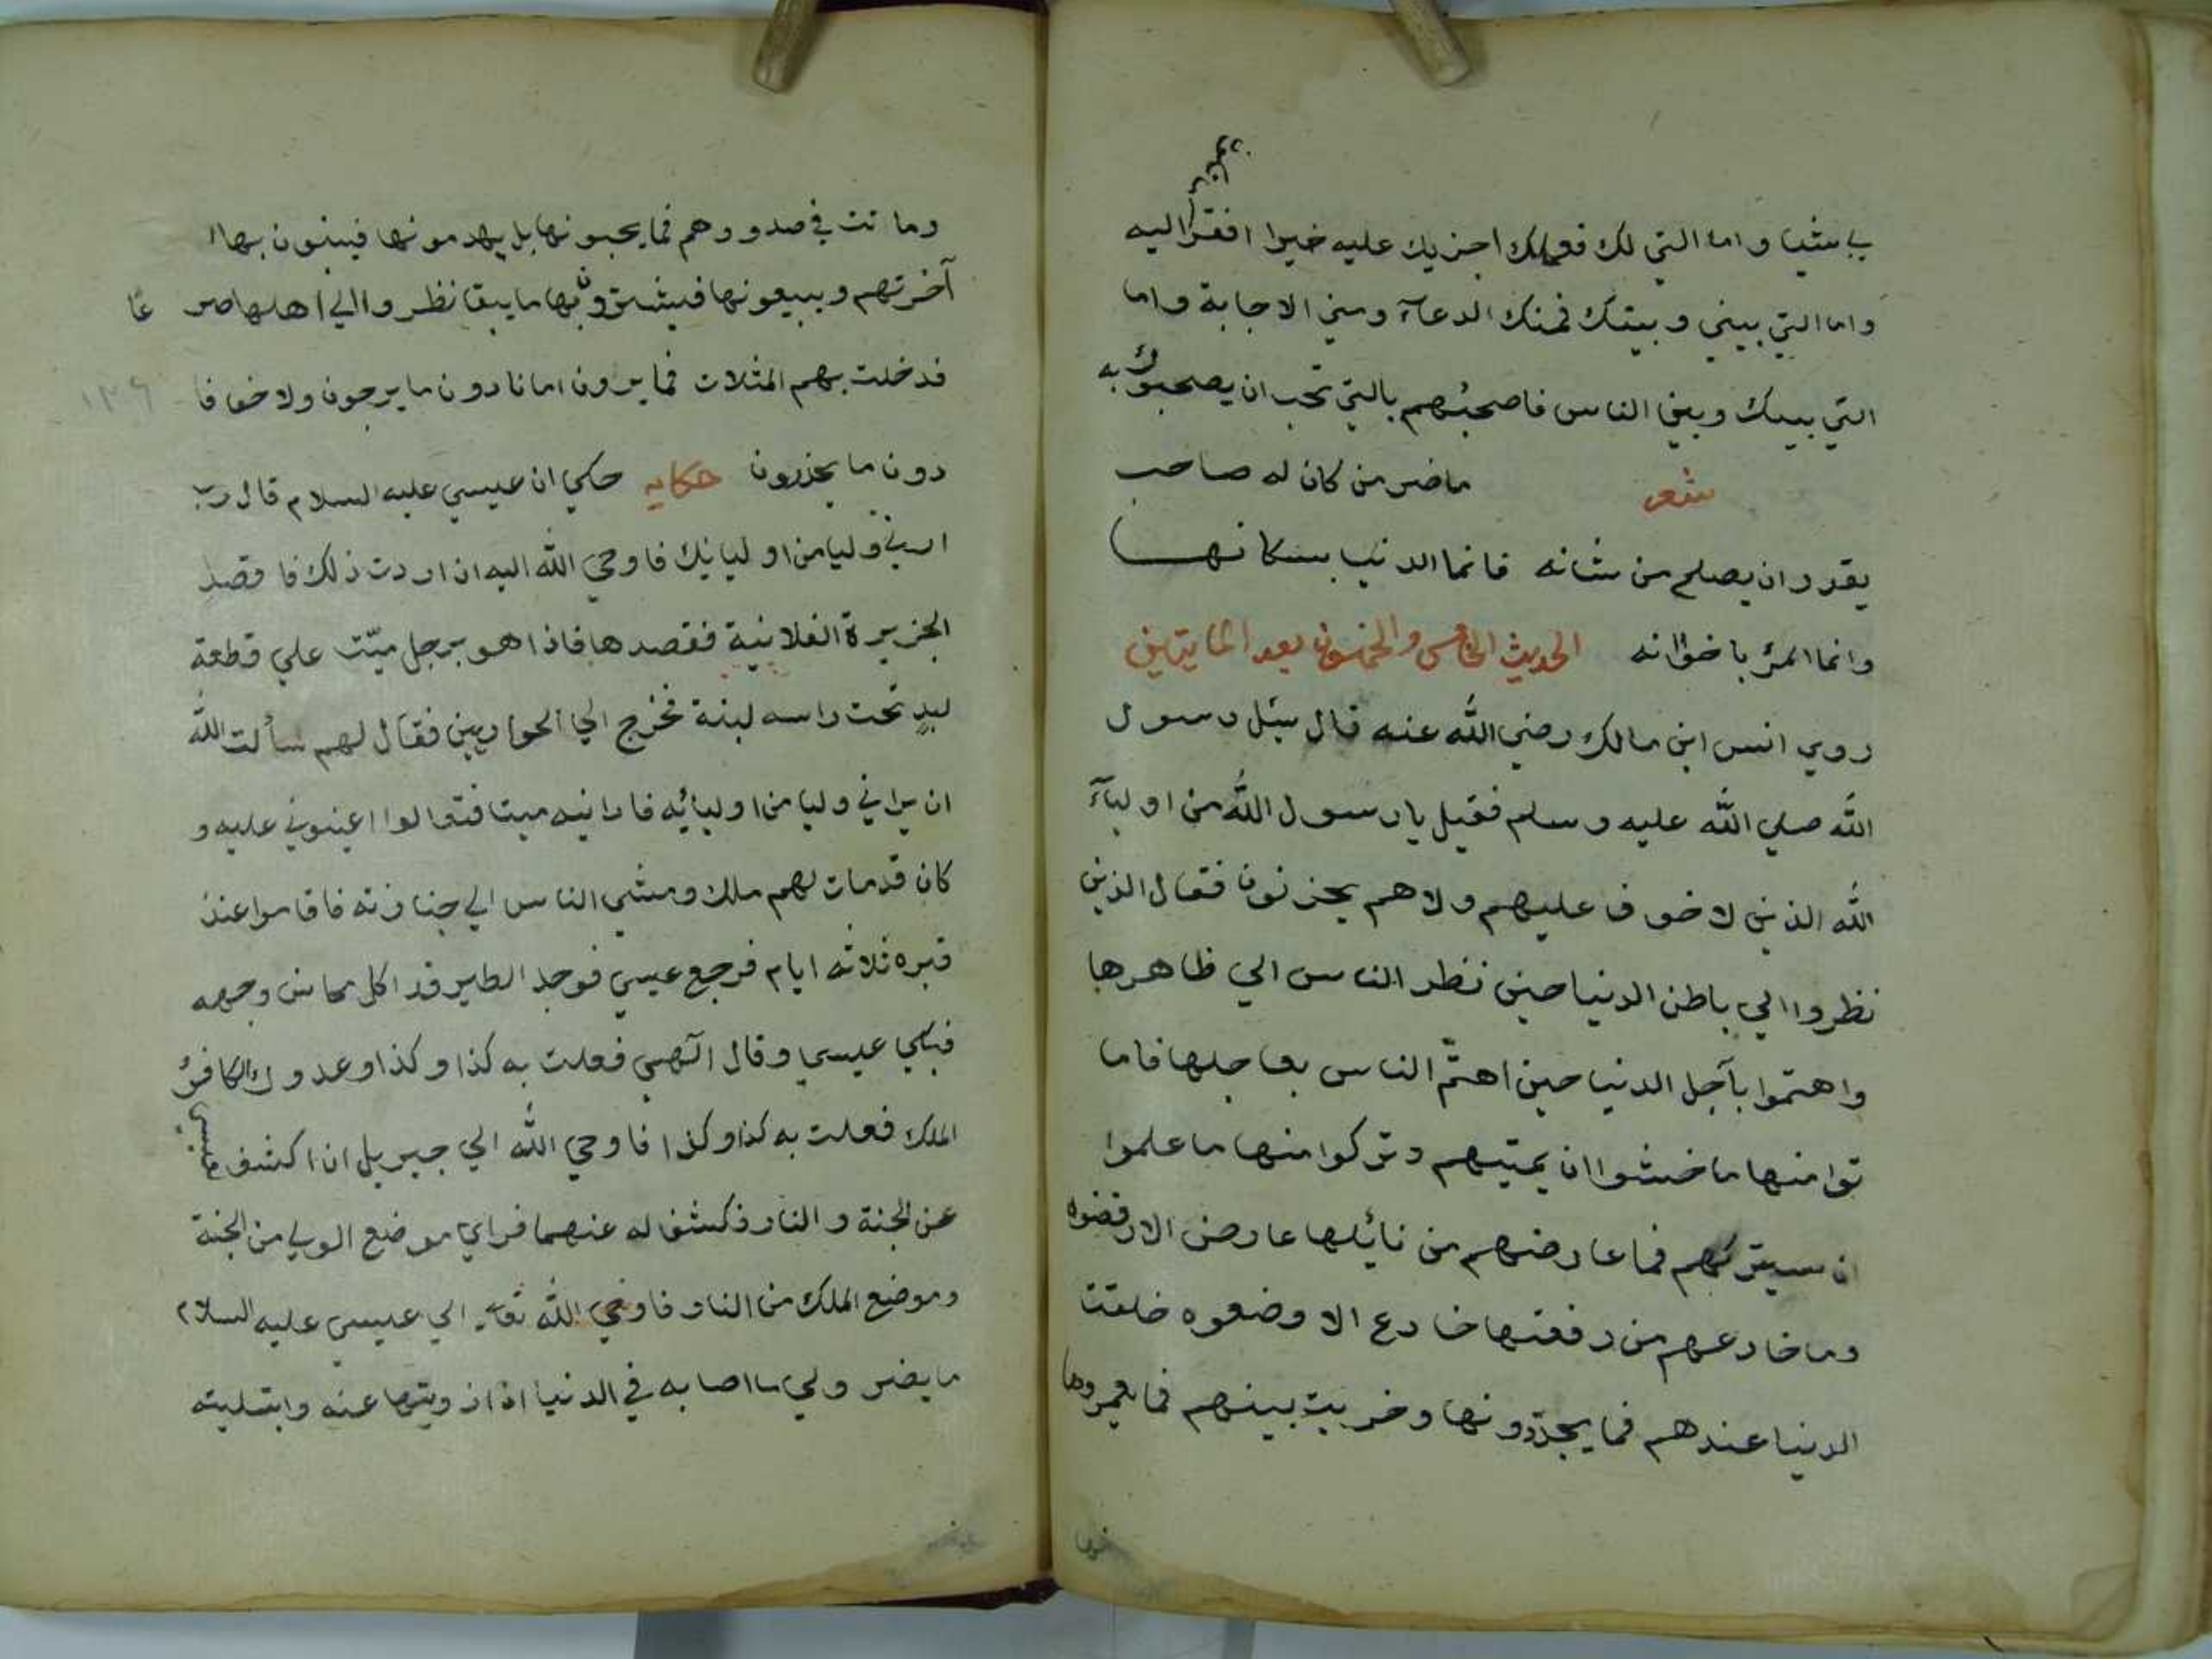 بي شيا واما التي لك فعملك اجزيك عليه خيرا افقر اليه
واما التي بيني وبينك فمنك الدعآء ومني الاجابة واما
التي بينك وبين الناس فاصحبهم بالتي تحب ان يصحبوك به
شعر ماضر من كان له صاحب
يقدر ان يصلح من شانه فانما الدنيا بسكانها
وانما المرء باخوانه الحديث الخامس والخمسون بعد المايتين
روي انس ابن مالك رضي الله عنه قال سئل رسول
الله صلي الله عليه وسلم فقيل يا رسول الله من اوليآء
الله الذين لا خوف عليهم ولا هم يحزنون فقال الذين
نظروا الي باطن الدنيا حين نظر الناس الي ظاهرها
واهتموا بآجل الدنيا حين اهتم الناس بعاجلها فاما
توا منها ما خشوا ان يميتهم وتركوا منها ما علموا
ان سيتركهم فما عارضهم من نائلها عارض الا رفضوه
وما خادعهم من رفعتها خادع الا وضعوه خلقت
الدنيا عندهم فما يجددونها وخربت بينهم فما يعمروها
وماتت في صدورهم فما يحبونها بل يهدمونها فيبنون بها
آخرتهم ويبيعونها فيشترون بها ما يبقا نظروا الي اهلها صرعا
قد خلت بهم المثلات فما يرون امانا دون ما يرجون ولا خوفا
دون ما يحذرون حكايه حكي ان عيسي عليه السلام قال رب
ارني وليا من اوليائك فاوحي الله اليه ان اردت ذلك فاقصد
الجزيرة الفلانية فقصدها فاذا هو برجل ميت علي قطعة
لبد تحت راسه لبنة فخرج الي الحواريين فقال لهم سألت الله
ان يراني وليا من اوليائه فارانيه ميتا فتعالوا اعينوني عليه و
كان قد مات لهم ملك ومشي الناس الي جنازته فاقاموا عند
قبره ثلاثه ايام فرجع عيسي فوجد الطاير قد اكل محاسن وجهه
فبكي عيسي وقال الهي فعلت به كذا وكذا وعدوك الكافر
الملك فعلت به كذا وكذا فاوحي الله الي جبريل ان اكشف لعيسي
عن الجنة والنار فكشف له عنهما فراي موضع الولي من الجنة
وموضع الملك من النار فاوحي الله تعالي الي عيسي عليه السلام
ما يضر ولي ما اصابه في الدنيا اذا زويتها عنه وابتليته
١٣٦